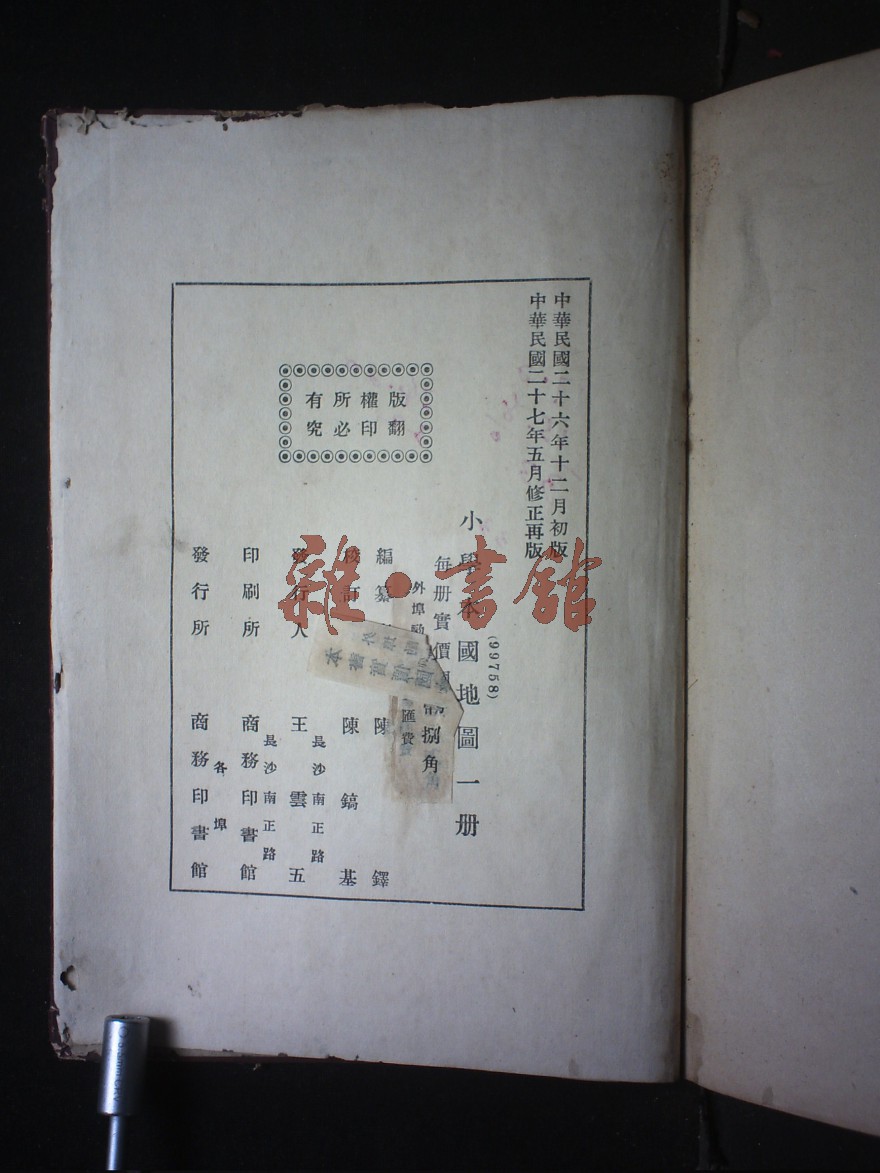 中華民國二十六年十二月初版
中華民國二十七年五月修正再版
(99758)
小學本國地圖一册
每册實價
捌角
外埠
匯費
版權所有
翻印必究
編纂 陳鐸
校訂 陳鎬基
發行人 王雲五
長沙南正路
印刷所 商務印書館
長沙南正路
發行所 商務印書館
各埠
雜·書館